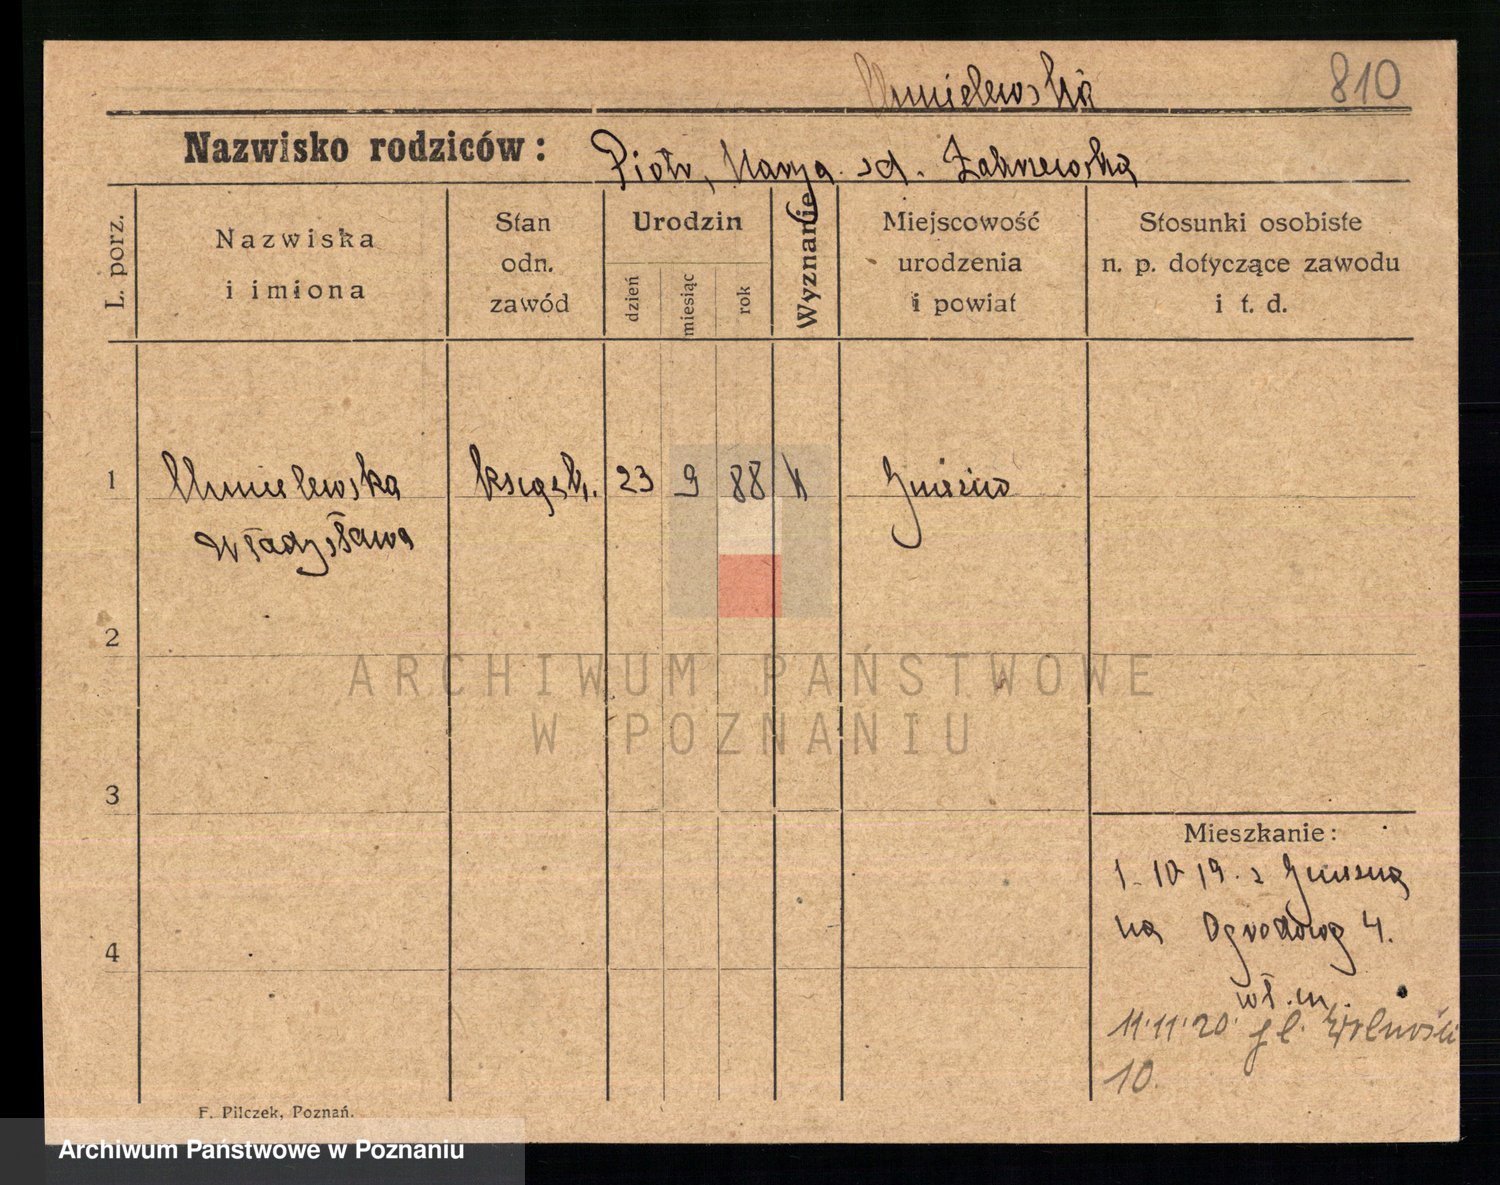 Chmielewska 810
Nazwisko rodziców: Piotr, Marya zd. Zakrzewska
L. porz.
Nazwiska
i imiona
Stan
odn.
zawód
Urodzin
dzień
miesiąc
rok
Wyznanie
Miejscowość
urodzenia
i powiat
Stosunki osobiste
n. p. dotyczące zawodu
i t. d.
1 Chmielewska 23 9 88 k Gniezno
Władysława
2
ARCHIWUM PAŃSTWOWE
W POZNANIU
3
Mieszkanie:
1.10.19. z Gniezna
na Ogrodową 4.
4
wł. m.
11.11.20. pl. Wolności
10.
F. Pilczek, Poznań.
Archiwum Państwowe w Poznaniu